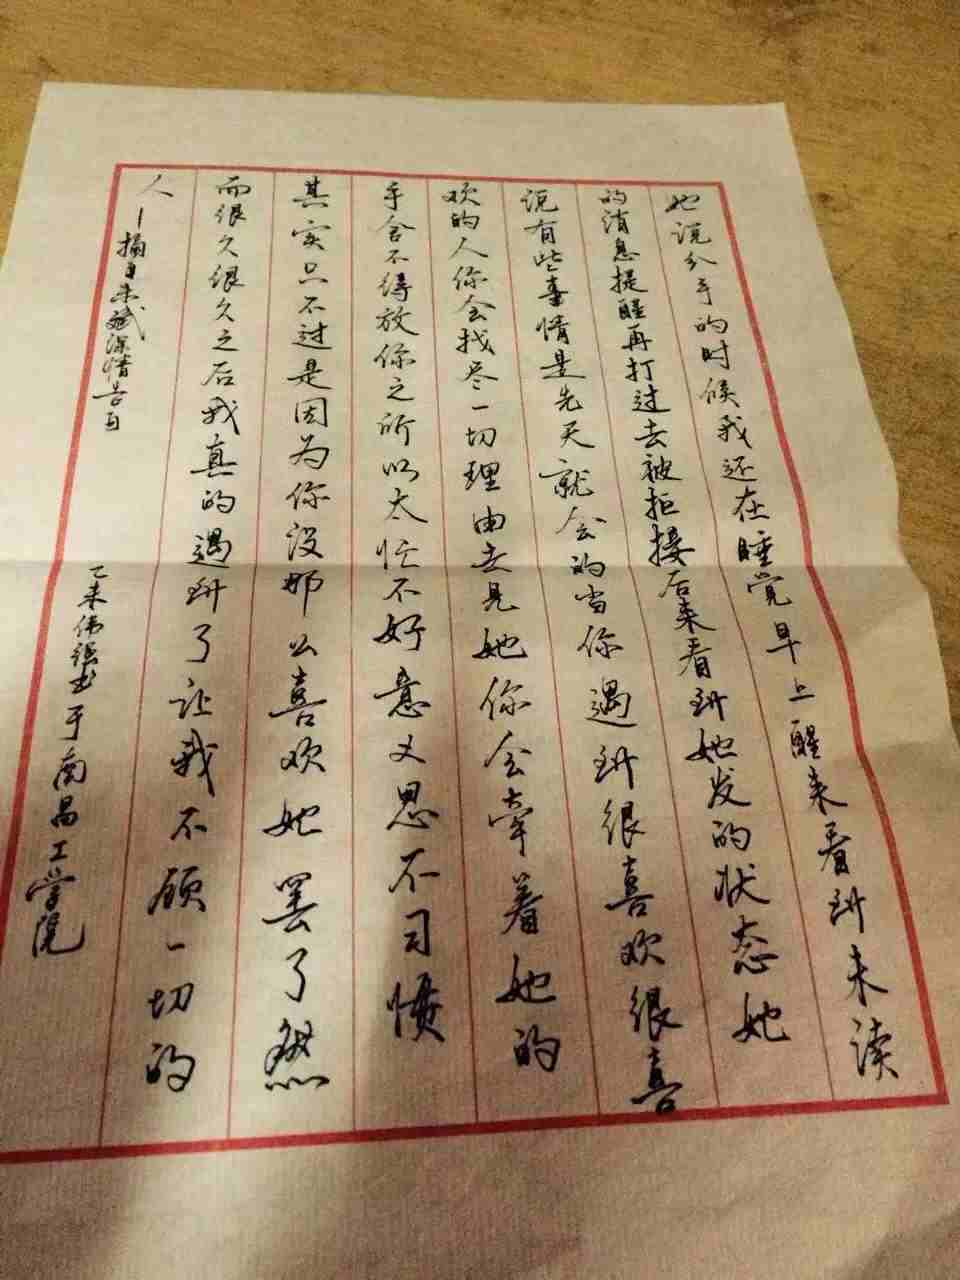 她说分手的时候我还在睡觉早上醒来看到未读
的消息提醒再打过去被拒接后来看到她发的状态她
说有些事情是先天就会的当你遇到很喜欢很喜
欢的人你会找尽一切理由去见她你会牵着她的
手舍不得放你之所以太忙不好意思不习惯
其实只不过是因为你没那么喜欢她罢了然
而很久很久之后我真的遇到了让我不顾一切的
人－摘自朱斌深情告白
乙未伟强书于南昌工学院